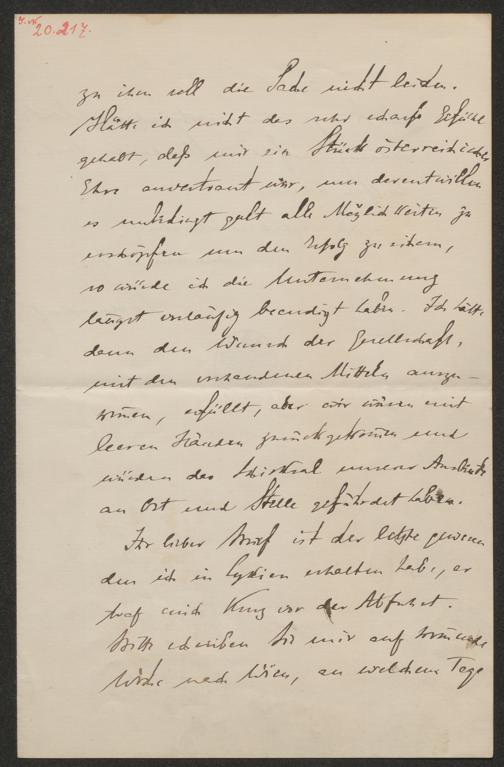 J.N. 20.217.
zu ihm soll die Sache nicht leiden.
Hätte ich nicht das sehr scharfe Gefühl
gehabt, daß mir ein Stück österreichischer
Ehre anvertraut war, um derentwillen
es unbedingt galt alle Möglichkeiten zu
erschöpfen um den Erfolg zu sichern,
so würde ich die Unternehmung
längst vorläufig beendigt haben. Ich hätte
dann den Wunsch der Gesellschaft,
mit den vorhandenen Mitteln auszu-
kommen, erfüllt, aber wir wären mit
leeren Händen zurückgekommen und
würden das Schicksal unserer Ausbeute
an Ort und Stelle gefährdet haben.
Ihr lieber Brief ist der letzte gewesen
den ich in Lykien erhalten habe, er
traf mich kurz vor der Abfahrt.
Bitte schreiben Sie mir auf
nach Wien, an welchem Tage